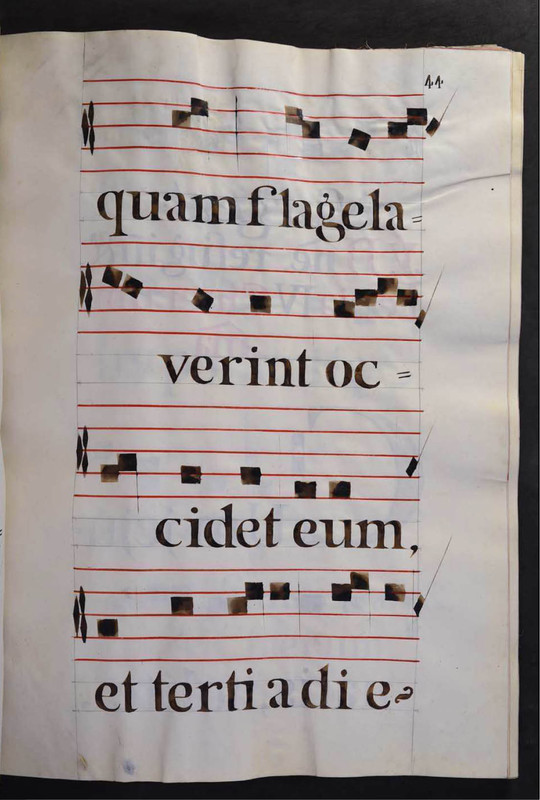 44
quam flagela=
verint oc=
cidet eum,
et tertia die